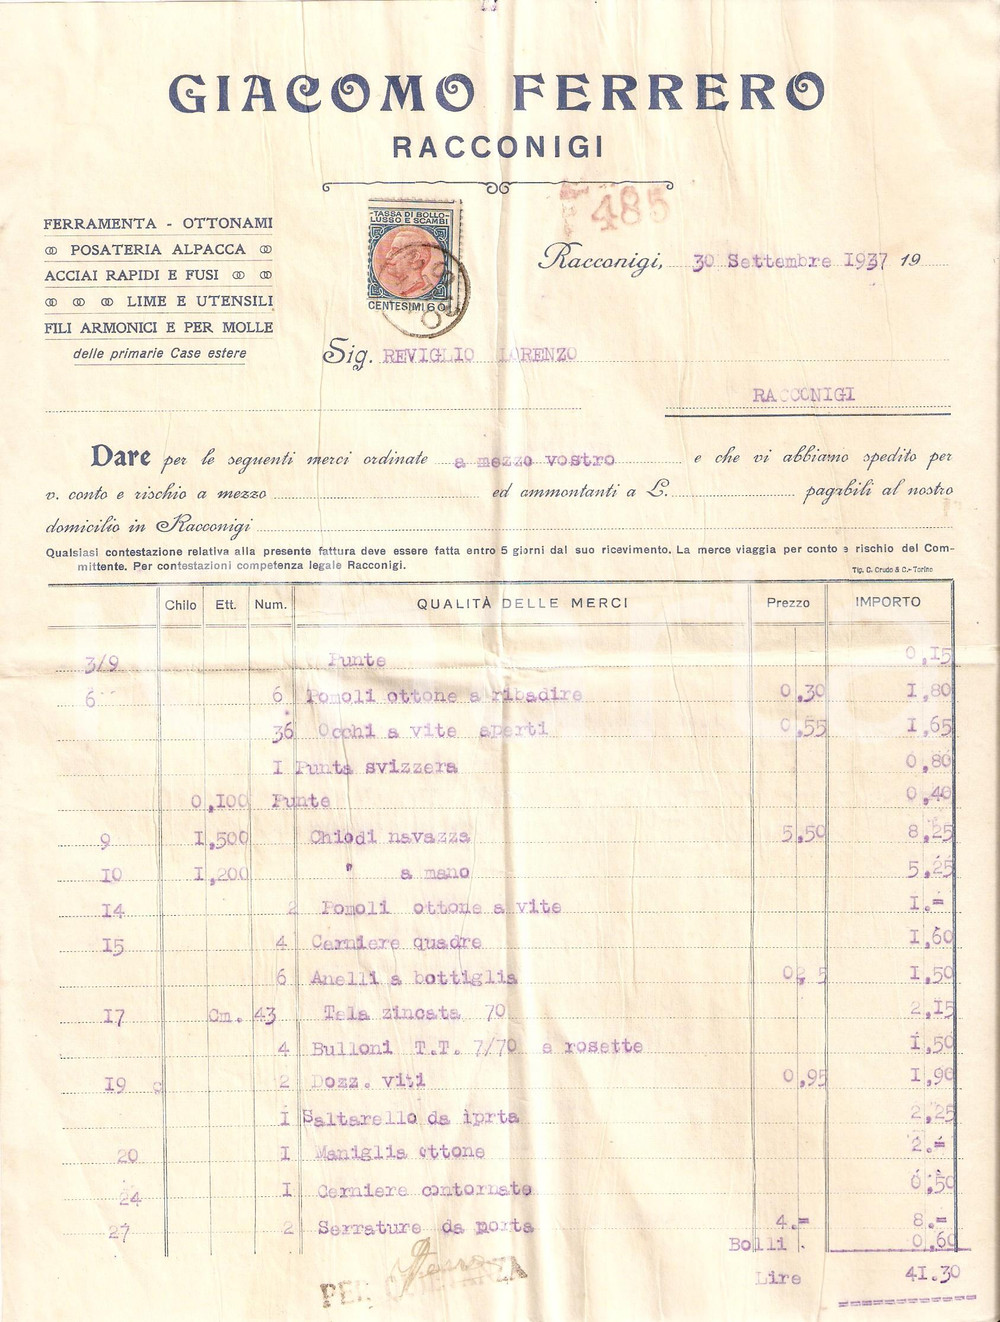 GIACOMO FERRERO
RACCONIGI
485
FERRAMENTA - OTTONAMI
POSATERIA ALPACCA
ACCIAI RAPIDI E FUSI
LIME E UTENSILI
FILI ARMONICI E PER MOLLE
delle primarie Case estere
-TASSA DI BOLLO-
LUSSO E SCAMBI
CENTESIMI 60
Racconigi, 30 Settembre 1937 19
Sig. REVIGLIO LORENZO
RACCONIGI
Dare per le seguenti merci ordinate a mezzo vostro e che vi abbiamo spedito per
v. conto e rischio a mezzo ed ammontanti a L. pagabili al nostro
domicilio in Racconigi
Qualsiasi contestazione relativa alla presente fattura deve essere fatta entro 5 giorni dal suo ricevimento. La merce viaggia per conto e rischio del Com-
mittente. Per contestazioni competenza legale Racconigi.
Tip. C. Crudo & C.- Torino
Chilo Ett. Num. QUALITÀ DELLE MERCI Prezzo IMPORTO
3/9 Punte 0,15
6 6 Pomoli ottone a ribadire 0,30 I,80
36 Occhi a vite aperti 0,55 I,65
I Punta svizzera 0,80
0,I00 Punte 0,40
9 I,500 Chiodi navazza 5,50 8,25
I0 I,200 " a mano 5,25
I4 2 Pomoli ottone a vite I.=
I5 4 Cerniere quadre I,60
6 Anelli a bottiglia 02,5 I,50
I7 Cm. 43 Tela zincata 70 2,I5
4 Bulloni T.T. 7/70 e rosette I,50
I9 2 Dozz. viti 0,95 I,90
I Saltarello da iprta 2,25
20 I Maniglia ottone 2.=
24 I Cerniere contornate 0,50
27 2 Serrature da porta 4.= 8.=
Bolli 0,60
Lire 4I.30
PER QUIETANZA